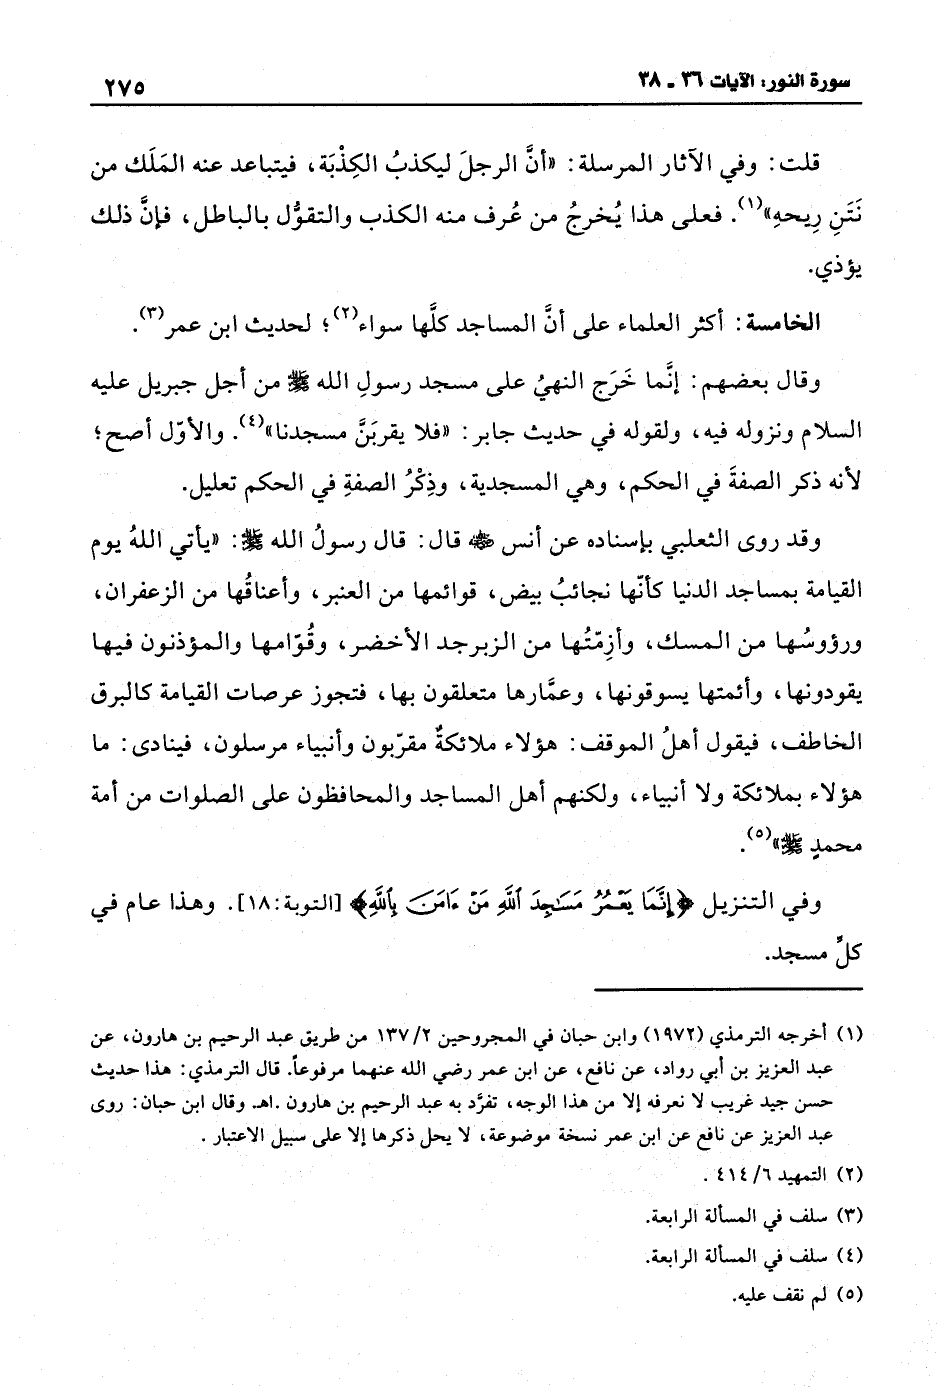 سورة النور: الآيات ٣٦ ـ ٣٨
٢٧٥
قلت: وفي الآثار المرسلة: «أنَّ الرجلَ ليكذبُ الكِذْبَة، فيتباعد عنه المَلَك من
نَتَنِ رِيحهِ»(١). فعلى هذا يُخرجُ من عُرف منه الكذب والتقوُّل بالباطل، فإنَّ ذلك
يؤذي.
الخامسة: أكثر العلماء على أنَّ المساجد كلَّها سواء(٢)؛ لحديث ابن عمر(٣).
وقال بعضهم: إنَّما خَرَج النهيُ على مسجد رسولِ الله ﷺ من أجل جبريل عليه
السلام ونزوله فيه، ولقوله في حديث جابر: «فلا يقربَنَّ مسجدنا»(٤). والأوّل أصح؛
لأنه ذكر الصفةَ في الحكم، وهي المسجدية، وذِكْرُ الصفةِ في الحكم تعليل.
وقد روى الثعلبي بإسناده عن أنس ﵁ قال: قال رسولُ الله ﷺ: «يأتي اللهُ يوم
القيامة بمساجد الدنيا كأنّها نجائبُ بيض، قوائمها من العنبر، وأعناقُها من الزعفران،
ورؤوسُها من المسك، وأزِمّتُها من الزبرجد الأخضر، وقُوّامها والمؤذنون فيها
يقودونها، وأئمتها يسوقونها، وعمَّارها متعلقون بها، فتجوز عرصات القيامة كالبرق
الخاطف، فيقول أهلُ الموقف: هؤلاء ملائكةٌ مقرّبون وأنبياء مرسلون، فينادى: ما
هؤلاء بملائكة ولا أنبياء، ولكنهم أهل المساجد والمحافظون على الصلوات من أمة
محمدٍ ﷺ»(٥).
وفي التنزيل ﴿إِنَّمَا يَعْمُرُ مَسَٰجِدَ ٱللَّهِ مَنْ ءَامَنَ بِٱللَّهِ﴾ [التوبة:١٨]. وهذا عام في
كلِّ مسجد.
(١) أخرجه الترمذي (١٩٧٢) وابن حبان في المجروحين ١٣٧/٢ من طريق عبد الرحيم بن هارون، عن
عبد العزيز بن أبي رواد، عن نافع، عن ابن عمر رضي الله عنهما مرفوعاً. قال الترمذي: هذا حديث
حسن جيد غريب لا نعرفه إلا من هذا الوجه، تفرَّد به عبد الرحيم بن هارون .اهـ. وقال ابن حبان: روى
عبد العزيز عن نافع عن ابن عمر نسخة موضوعة، لا يحل ذكرها إلا على سبيل الاعتبار .
(٢) التمهيد ٤١٤/٦ .
(٣) سلف في المسألة الرابعة.
(٤) سلف في المسألة الرابعة.
(٥) لم نقف عليه.